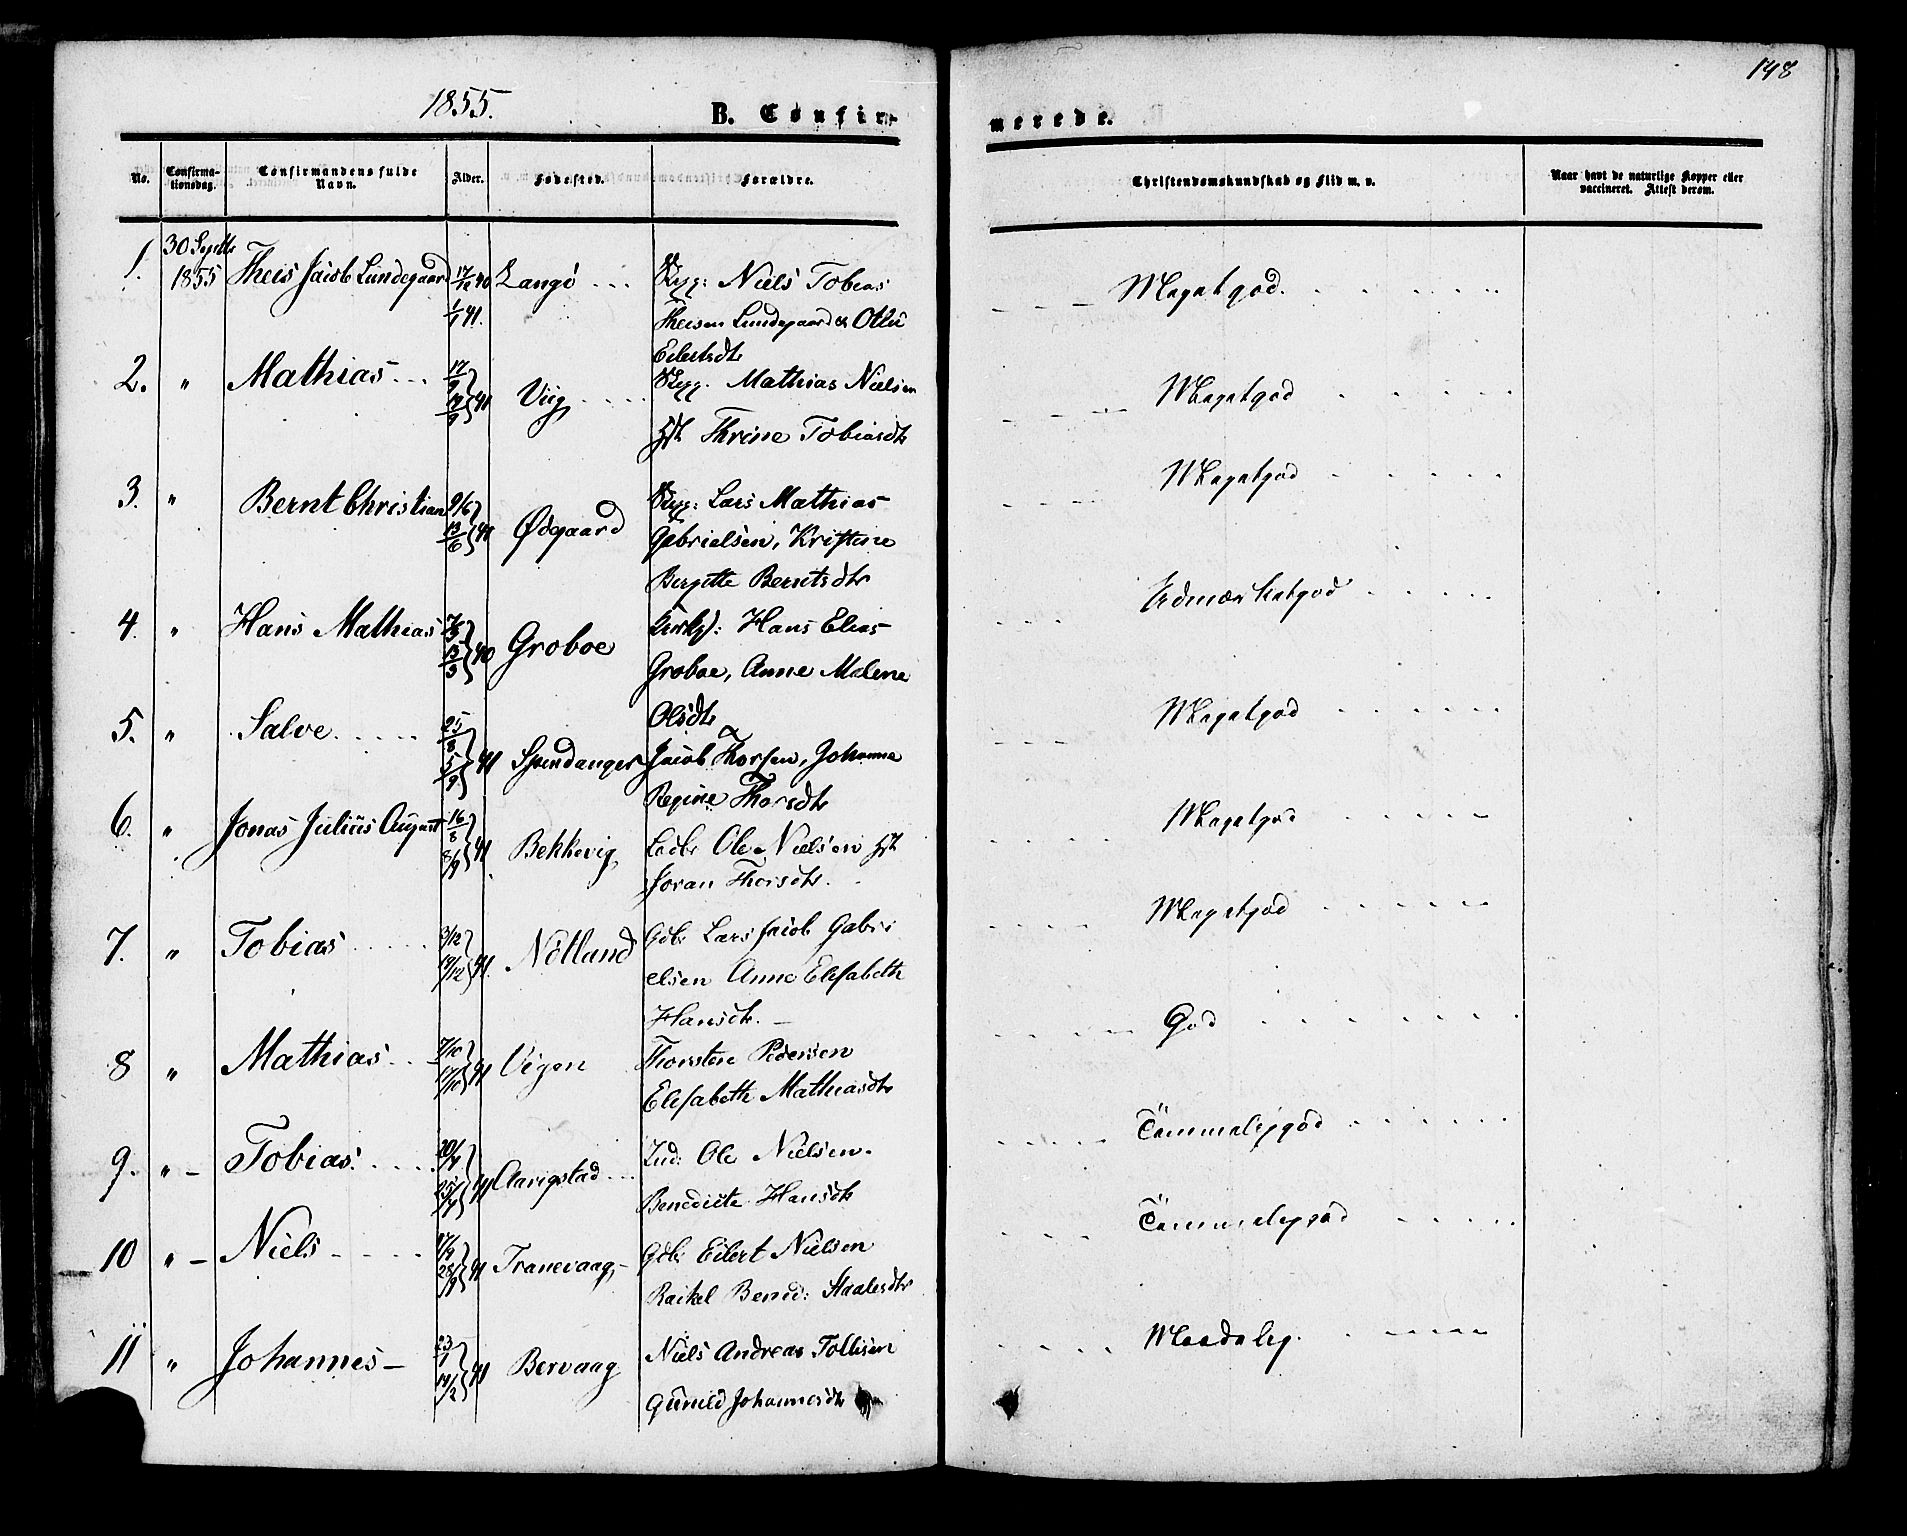 148
1855.
B. Confirmerede.
No. Confirmationsdag. Confirmandens fulde Navn. Alder. Fødested. Forældre. Christendomskundskab og Flid m. v. Naar havt de naturlige Kopper eller vaccineret. Attest derom.
1. 30 Septbr 1855 Theis Jacob Lundegaard 17/12 40 Langø Niels Tobias Meget god.
1/1 41. Theisen Lundegaard & Otlie
Eilertsdtr
2. " Mathias 17/9 41 Viig Mathias Nielsen Meget god
Thrine Tobiasdtr
3. " Bernt Christian 9/6 Ødgaard Lars Mathias Meget god
13/6 41 Gabrielsen, Kristine
Birgitte Berntsdtr
4. " Hans Mathias 13/3 40 Groboe Hans Elias Udmærket god
Groboe, Anne Malene
Olsdtr
5. " Salve 25/8 5/9 41 Spindanger Jacob Thorsen, Johanne Meget god
Regine Thorsdtr
6. " Jonas Julius August 16/8 8/9 41 Bekkevig Ole Nielsen Meget god
Joran Thorsdtr.
7. " Tobias 3/12 19/12 41. Nötland Gdbr Lars Jacob Gabri Meget god
elsen Anne Elisabeth
Hansdtr.
8 " Mathias 7/10 17/10 41 Vigen Thorsten Pedersen God
Elisabeth Mathiasdtr
9. " Tobias. 20/4 25/4 41 Clarigstad Ind: Ole Nielsen. Temmelig god
Benedicte Hansdtr
10 " Niels 17/9 28/9 41 Tranevaag Gdbr Eilert Nielsen Temmelig god
Raikel Bened: Staalesdtr
11 " Johannes 23/1 14/2 41 Bervaag Niels Andreas Tollisen Maadelig.
Gunild Johannesdtr